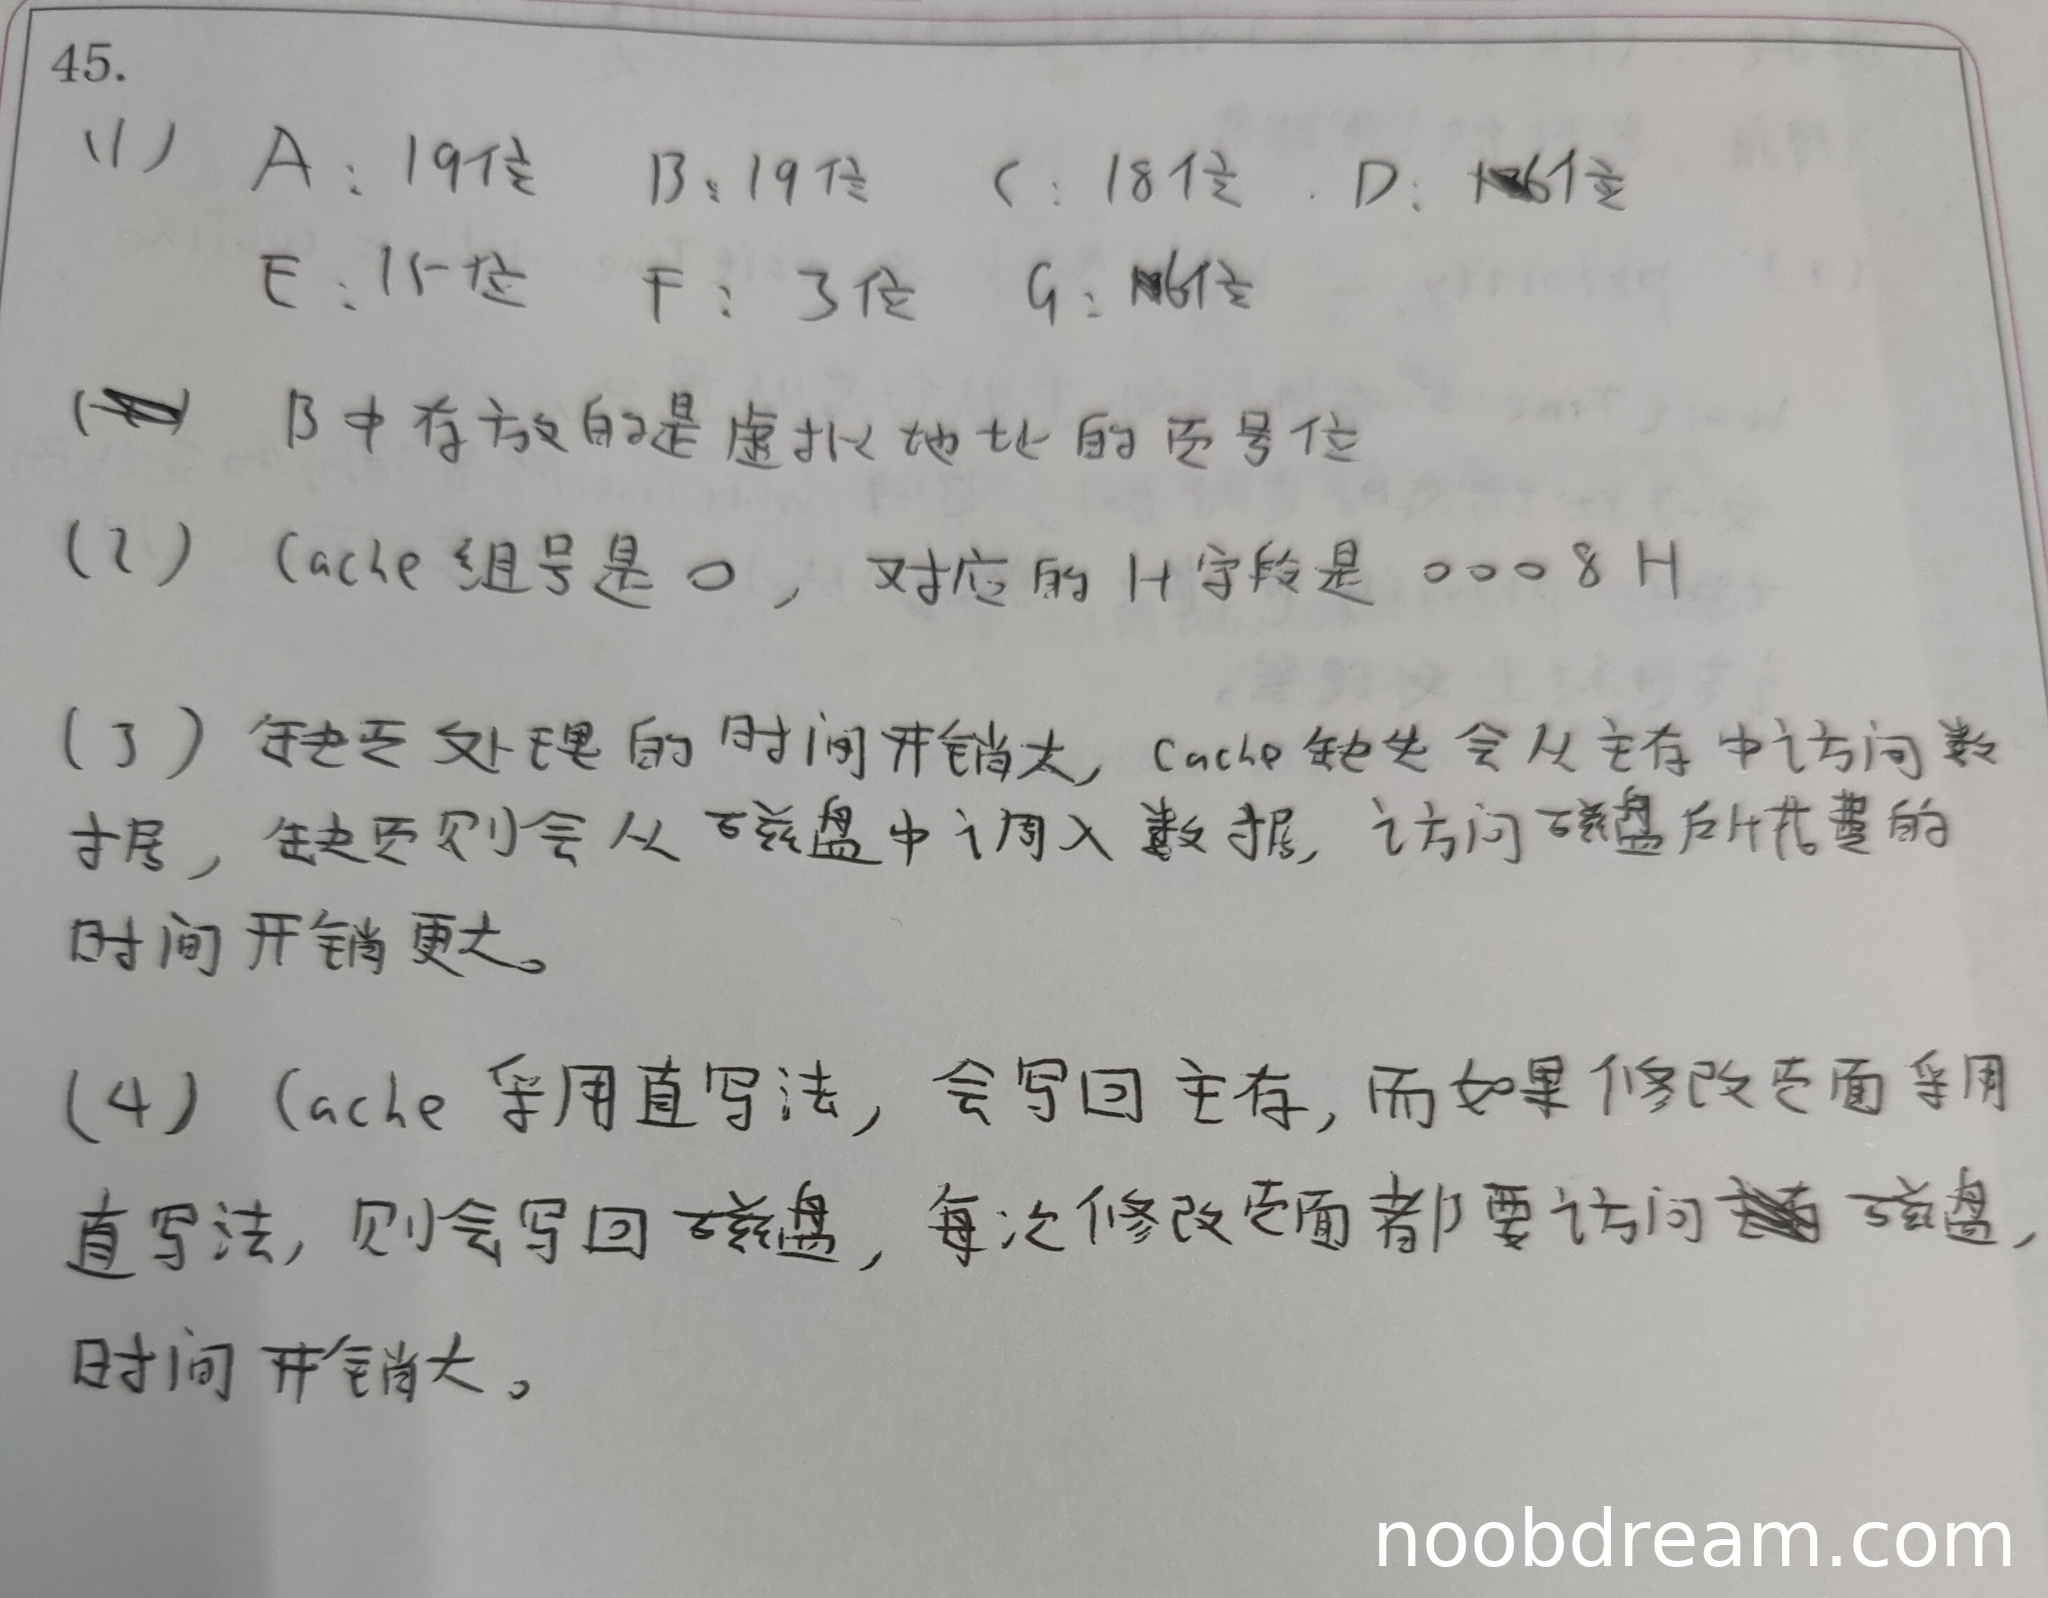 45.
(1) A: 19位 B: 19位 C: 18位 D: 6位
E: 15位 F: 3位 G: 6位
B中存放的是虚拟地址的页号位
(2) Cache组号是0, 对应的H字段是0008H
(3) 缺页处理的时间开销大, Cache缺失会从主存中访问数
据, 缺页则会从磁盘中调入数据, 访问磁盘所花费的
时间开销更大。
(4) Cache采用直写法, 会写回主存, 而如果修改页面采用
直写法, 则会写回磁盘, 每次修改页面都要访问磁盘,
时间开销大。
noobdream.com